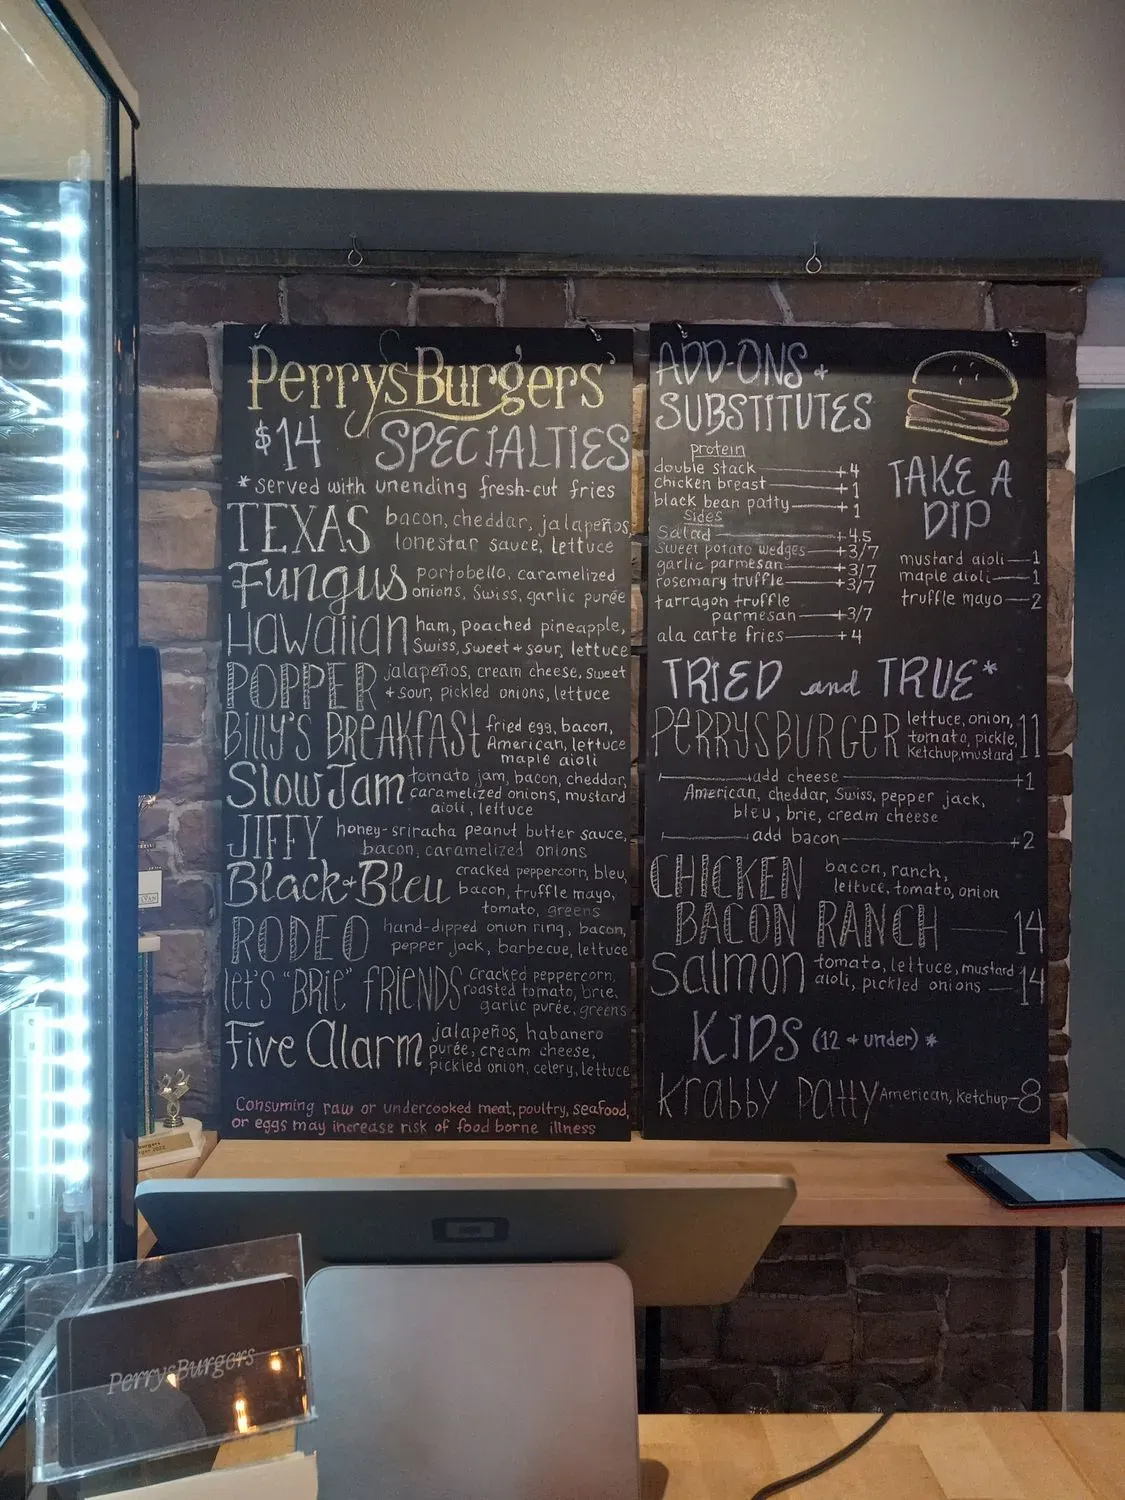 PerrysBurgers'
$14 SPECIALTIES
*served with unending fresh-cut fries
TEXAS bacon, cheddar, jalapeños,
lonestar sauce, lettuce
Fungus portobello, caramelized
onions, Swiss, garlic purée
HAWAIIAN ham, poached pineapple,
Swiss, sweet + sour, lettuce
POPPER jalapeños, cream cheese, sweet
+ sour, pickled onions, lettuce
BILLY'S BREAKFAST fried egg, bacon,
American, lettuce
maple aioli
Slow Jam tomato jam, bacon, cheddar,
caramelized onions, mustard
aioli, lettuce
JIFFY honey-sriracha peanut butter sauce,
bacon, caramelized onions
Black+Bleu cracked peppercorn, bleu,
bacon, truffle mayo,
tomato, greens
RODEO hand-dipped onion ring, bacon,
pepper jack, barbecue, lettuce
let's "BRIE" FRIENDS cracked peppercorn,
roasted tomato, brie,
garlic purée, greens
Five Alarm jalapeños, habanero
purée, cream cheese,
pickled onion, celery, lettuce
Consuming raw or undercooked meat, poultry, seafood,
or eggs may increase risk of food borne illness
ADD-ONS +
SUBSTITUTES
protein
double stack +4
chicken breast +1
black bean patty +1
Sides
Salad +4.5
sweet potato wedges +3/7
garlic parmesan +3/7
rosemary truffle +3/7
tarragon truffle
parmesan +3/7
ala carte fries +4
TAKE A
DIP
mustard aioli 1
maple aioli 1
truffle mayo 2
TRIED and TRUE*
PERRYSBURGER lettuce, onion,
tomato, pickle, 11
ketchup, mustard
add cheese +1
American, cheddar, Swiss, pepper jack,
bleu, brie, cream cheese
add bacon +2
CHICKEN bacon, ranch,
lettuce, tomato, onion
BACON RANCH 14
Salmon tomato, lettuce, mustard
aioli, pickled onions 14
KIDS (12 + under) *
Krabby Patty American, ketchup 8
PerrysBurgers